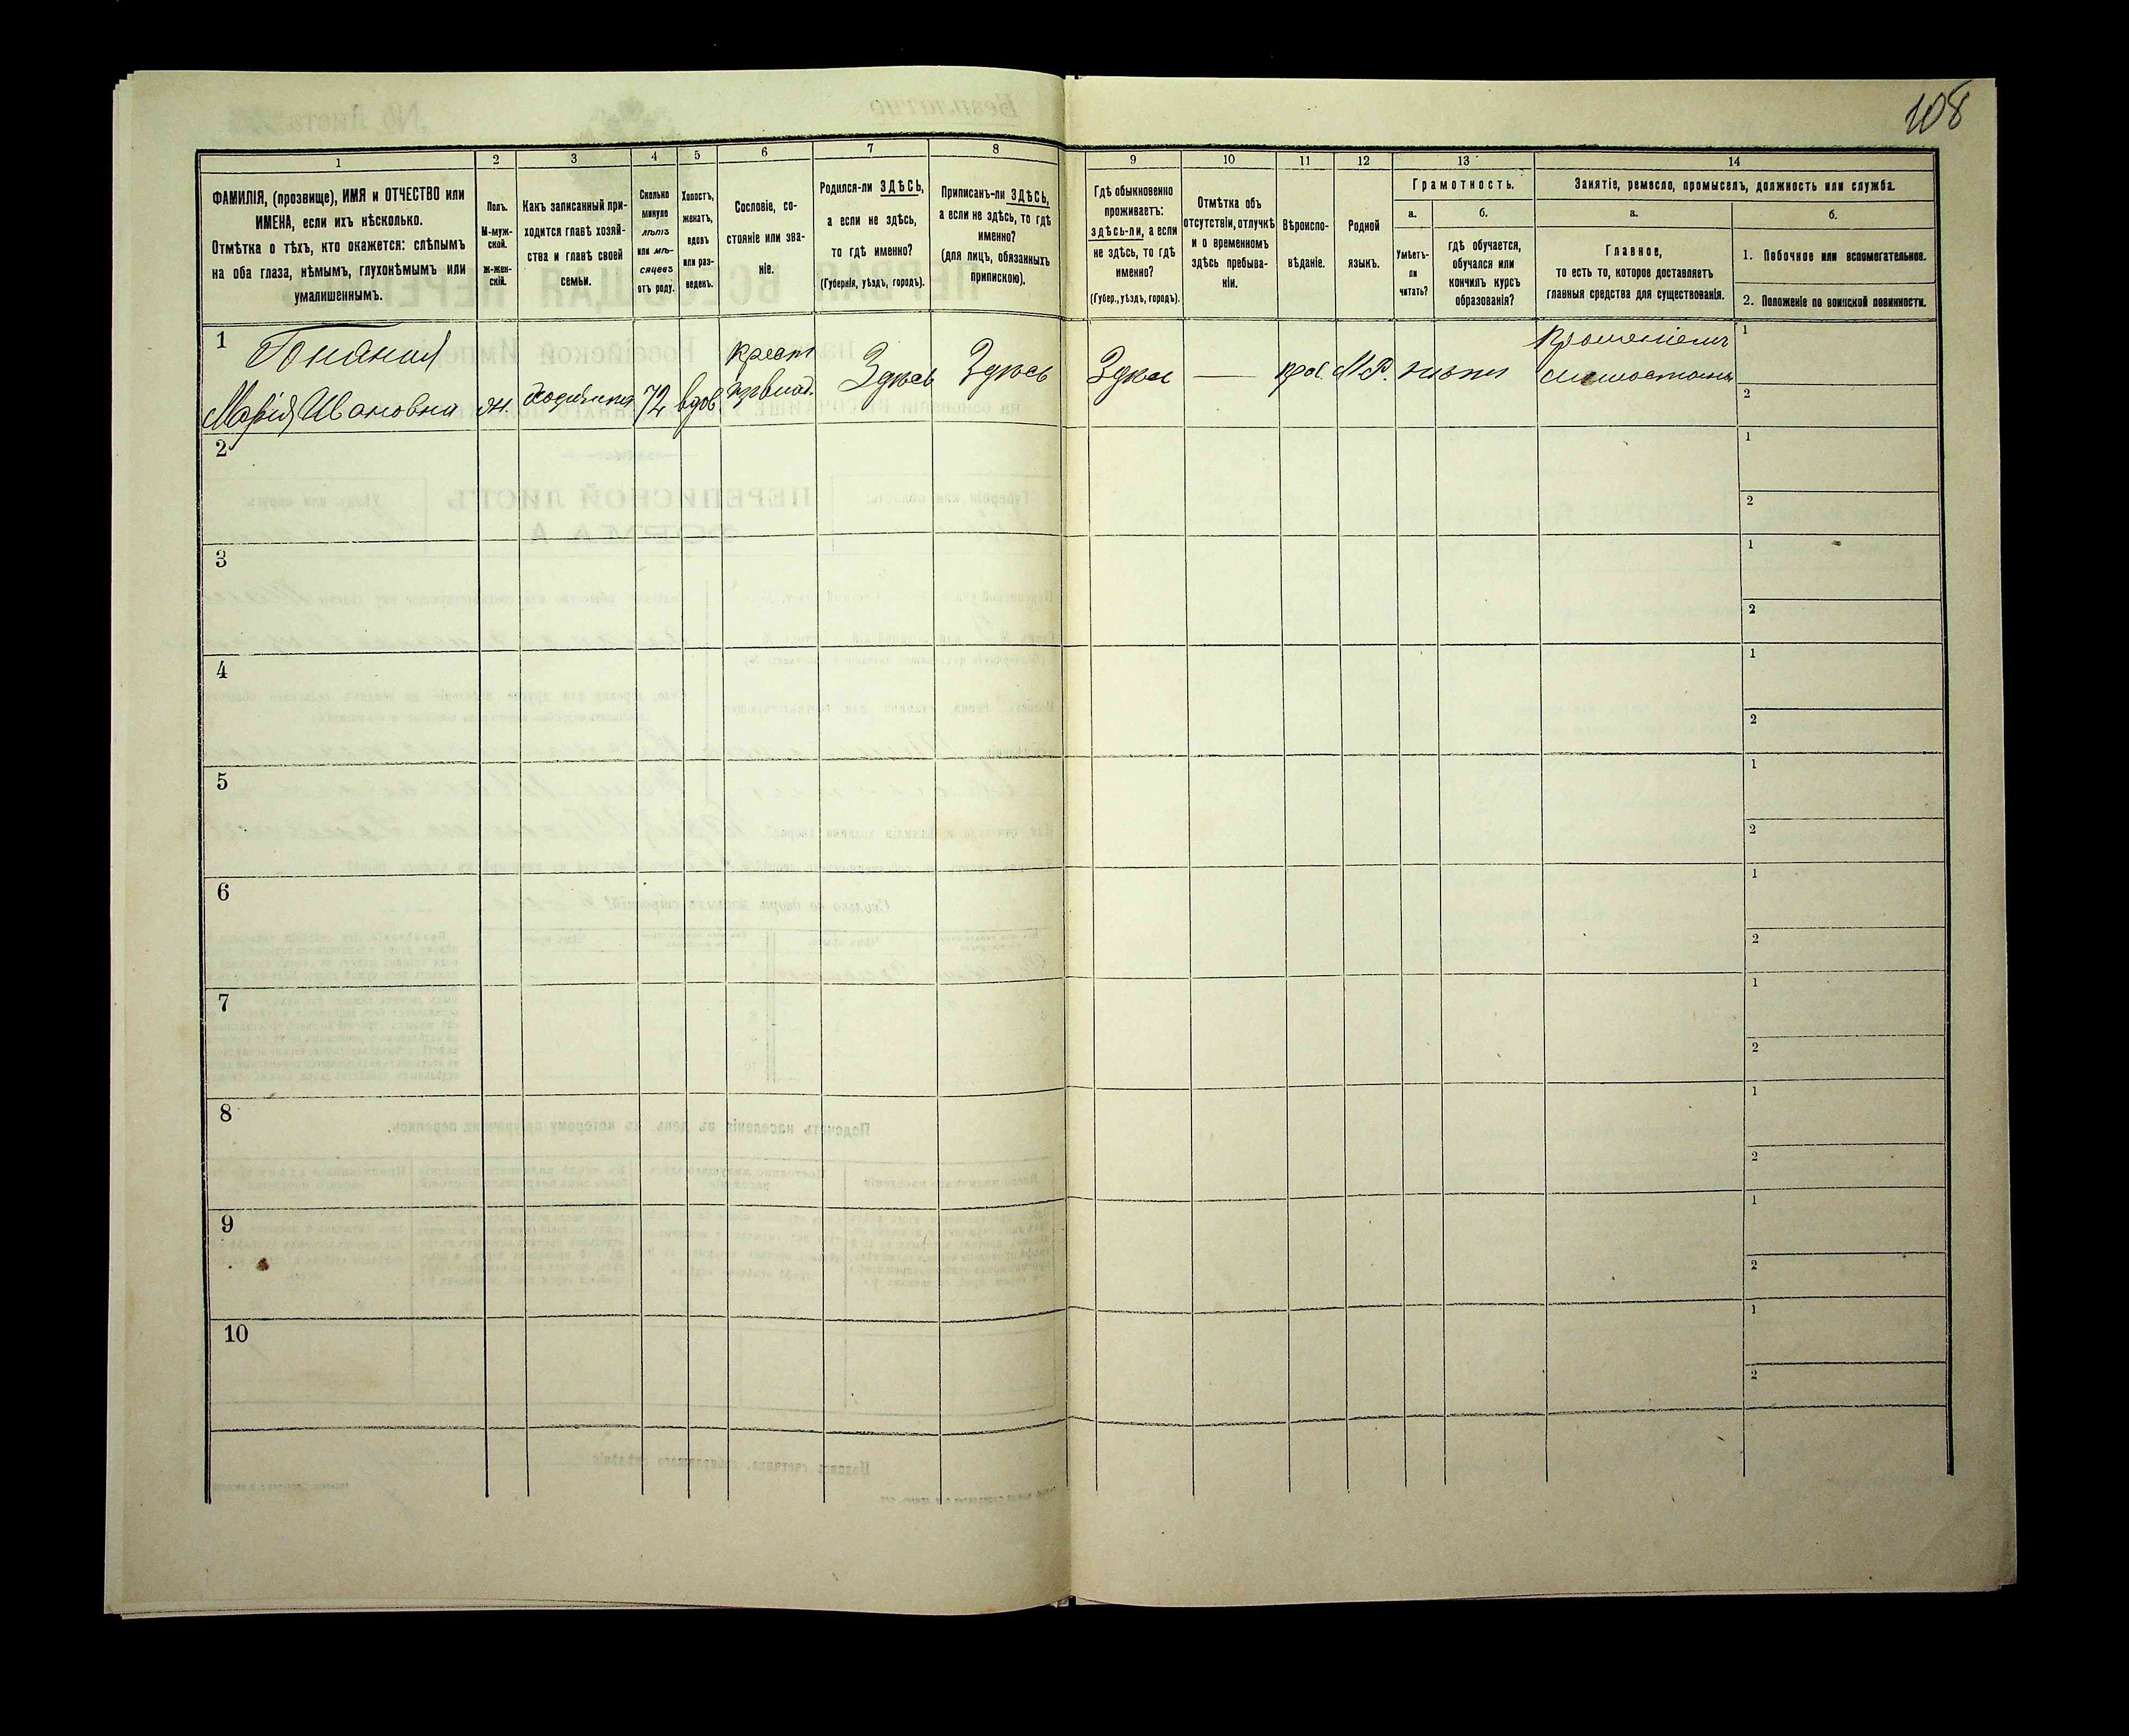 108
1
2
3
4
5
6
7
8
9
10
11
12
13
14
ФАМИЛІЯ, (прозвище), ИМЯ и ОТЧЕСТВО или
ИМЕНА, если ихъ нѣсколько.
Отмѣтка о тѣхъ, кто окажется: слѣпымъ
на оба глаза, нѣмымъ, глухонѣмымъ или
умалишеннымъ.
Полъ.
М-муж-
ской.
ж-жен-
скій.
Какъ записанный при-
ходится главѣ хозяй-
ства и главѣ своей
семьи.
Сколько
минуло
лѣтъ
или мѣ-
сяцевъ
отъ роду.
Холостъ,
женатъ,
вдовъ
или раз-
веденъ.
Сословіе, со-
стояніе или зва-
ніе.
Родился-ли ЗДѢСЬ,
а если не здѣсь,
то гдѣ именно?
(Губернія, уѣздъ, городъ).
Приписанъ-ли ЗДѢСЬ,
а если не здѣсь, то гдѣ
именно?
(для лицъ, обязанныхъ
припискою).
Гдѣ обыкновенно
проживаетъ:
здѣсь-ли, а если
не здѣсь, то гдѣ
именно?
(Губер., уѣздъ, городъ).
Отмѣтка объ
отсутствіи, отлучкѣ
и о временномъ
здѣсь пребыва-
ніи.
Вѣроиспо-
вѣданіе.
Родной
языкъ.
Грамотность.
а.
Умѣетъ-
ли
читать?
б.
гдѣ обучается,
обучался или
кончилъ курсъ
образованія?
Занятіе, ремесло, промыселъ, должность или служба.
а.
Главное,
то есть то, которое доставляетъ
главныя средства для существованія.
б.
1. Побочное или вспомогательное.
2. Положеніе по воинской повинности.
1
Марія Ивановна
ж.
72
вдов
крест
Здѣсь
Здѣсь
Здѣсь
—
М.Р.
1
2
2
1
2
3
1
2
4
1
2
5
1
2
6
1
2
7
1
2
8
1
2
9
1
2
10
1
2